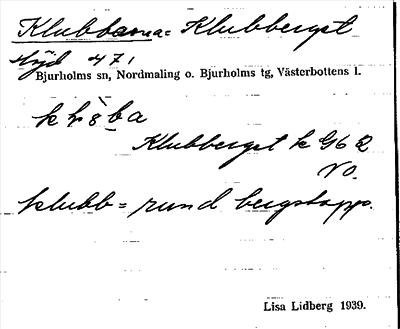 Klubbarna = Klubbergst
Höjd 471
Bjurholms sn, Nordmaling o. Bjurholms tg, Västerbottens l.
Klubbergst k G6 2
NO.
klubb = rund bergstopp.
Lisa Lidberg 1939.